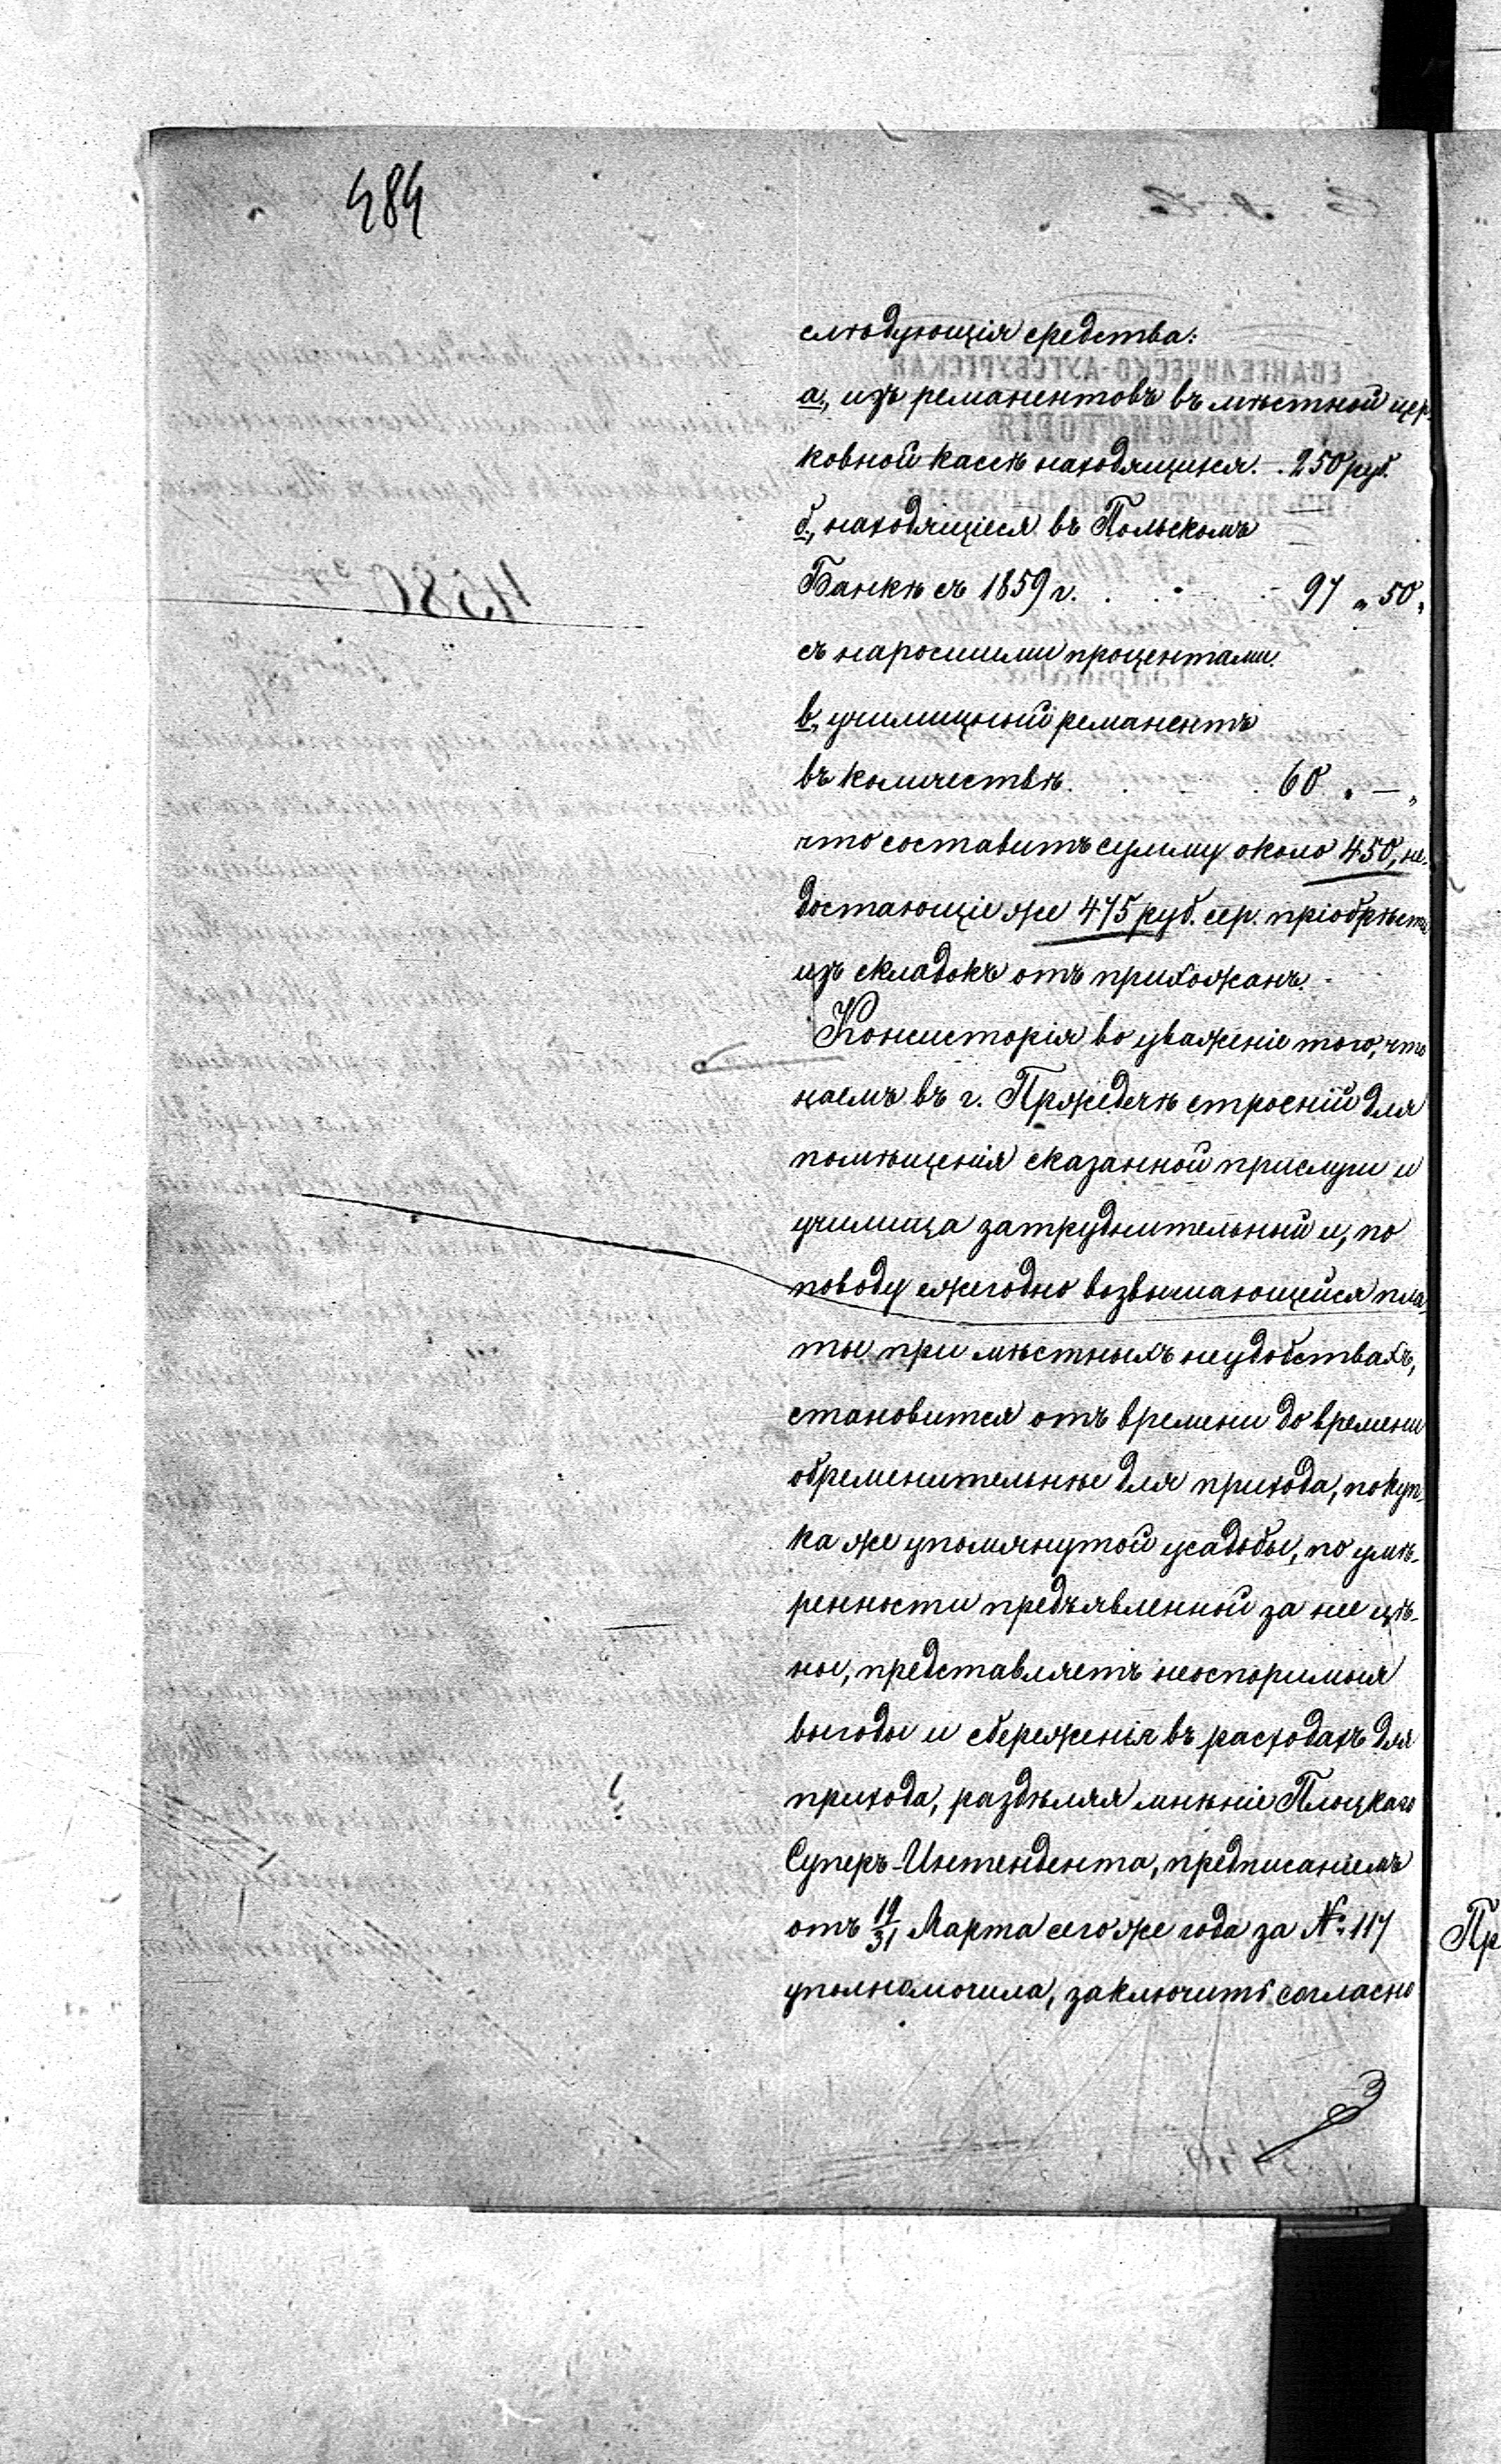 484
слѣдующія средства:
а., изъ реманентовъ въ мѣстной цер-
ковной кассѣ находящихся. . 250 руб.
б., находящіеся въ Польскомъ
Банкѣ съ 1859 г. . . . 97 „ 50 „
съ наросшими процентами.
в., училищный реманентъ
въ количествѣ. . . . 60 „ — „
что составитъ сумму около 450, не-
достающіе же 475 руб. сер. пріобрѣсти
изъ складокъ отъ прихожанъ. -
Консисторія во уваженіе того, что
наемъ въ г. Пржедечѣ строеній для
помѣщенія сказанной прислуги и
училища затруднительный и, по
поводу ежегодно возвышающейся пла-
ты при мѣстныхъ неудобствахъ,
становится отъ времени до времени
обременительнѣе для прихода, покуп-
ка же упомянутой усадьбы, по умѣ-
ренности предъявленной за нее цѣ-
ны, представляетъ неоспоримыя
выгоды и сбереженія въ расходахъ для
прихода, раздѣляя мнѣніе Плоцкаго
Суперъ-Интендента, предписаніемъ
отъ 19/31 Марта сего же года за № 117
уполномочила, заключить согласно
Пр